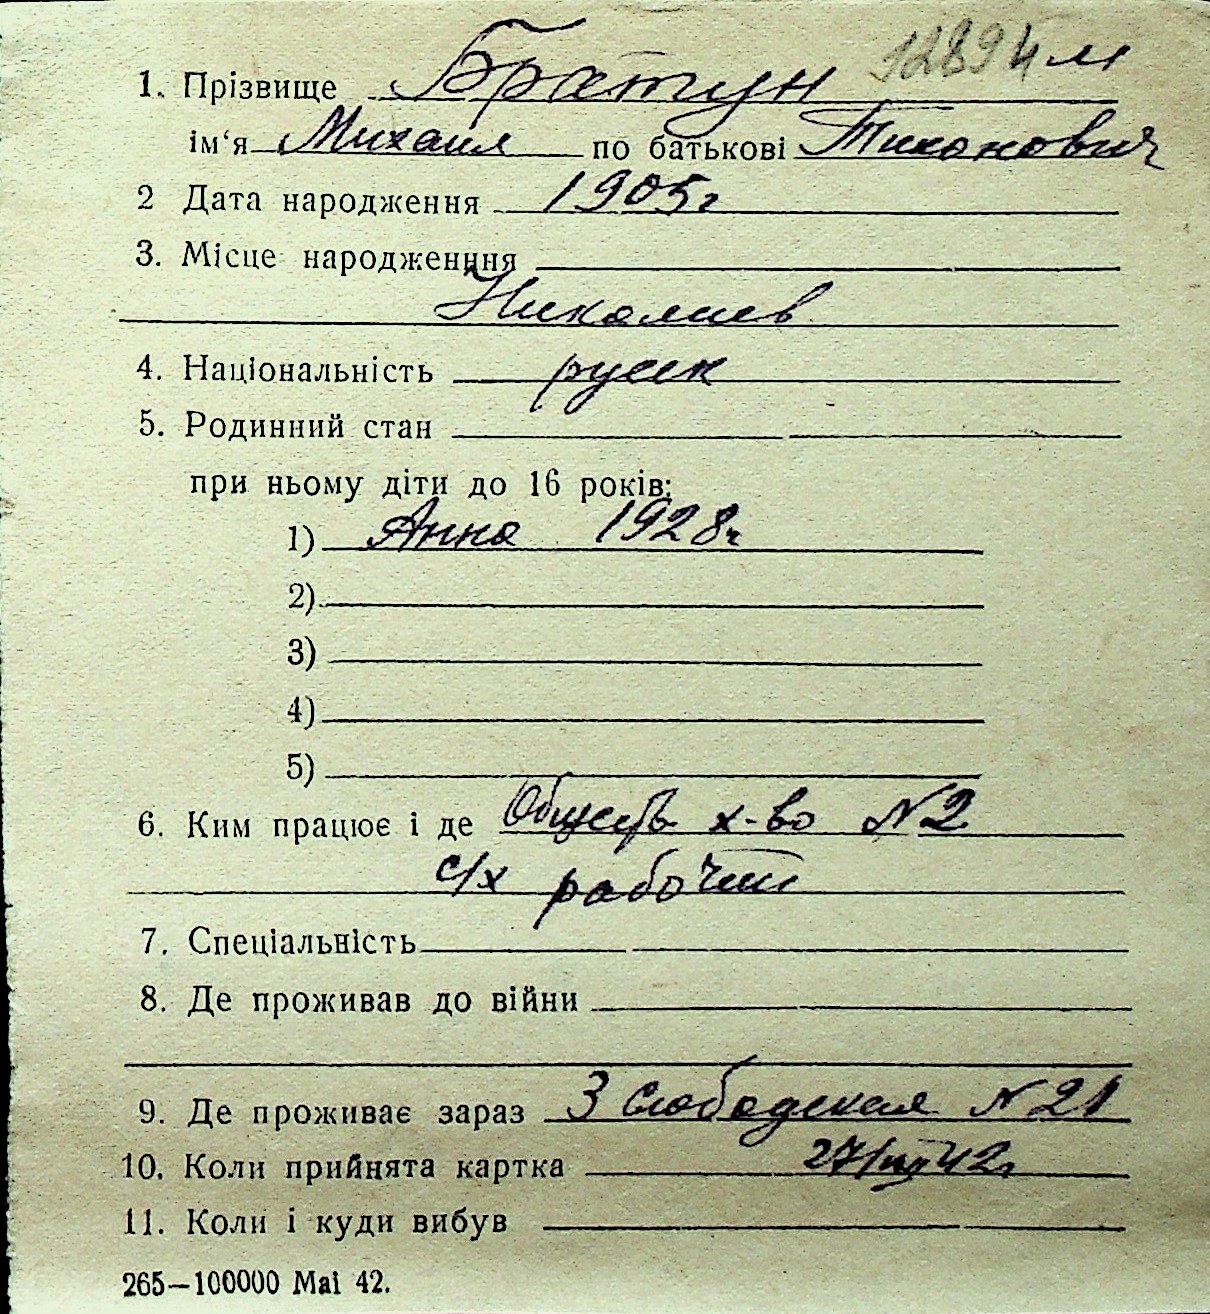 12894 м
1. Прізвище Братун
ім‘я Михаил по батькові Тихонович
2 Дата народження 1905г
3. Місце народженння
Николаев
4. Національність русск
5. Родинний стан
при ньому діти до 16 років:
1) Анна 1928г
2)
3)
4)
5)
6. Ким працює і де Обществ х-во №2
с/х рабочий
7. Спеціальність
8. Де проживав до війни
9. Де проживає зараз 3 Слободская №21
10. Коли прийнята картка 27/ 42г
11. Коли і куди вибув
265—100000 Mai 42.